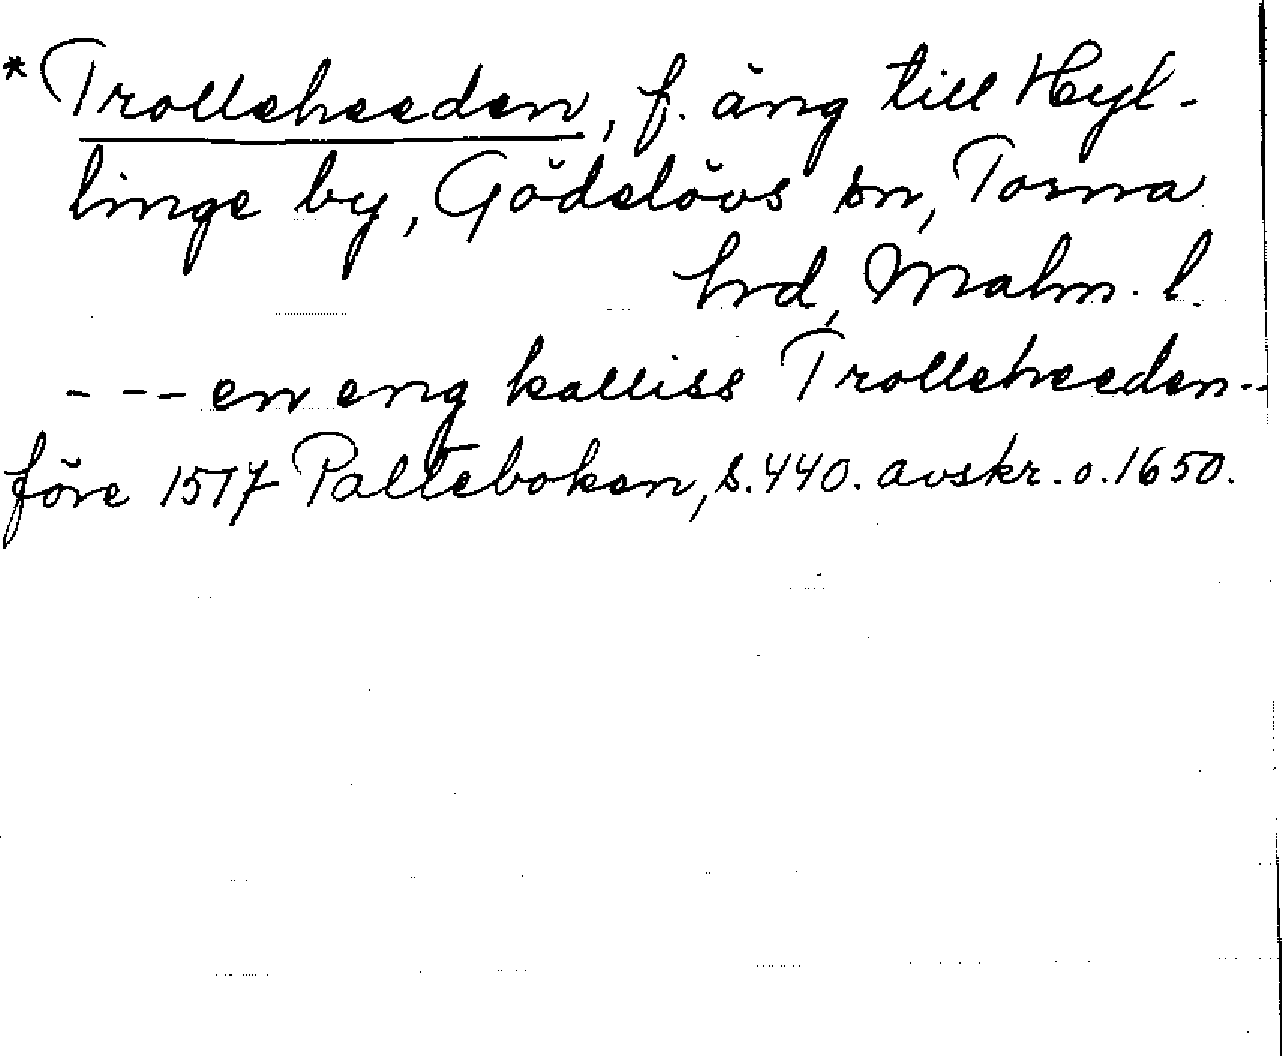 *Trolleheeden, f. äng till Hyl-
linge by, Gödelövs sn, Torna
hrd, Malm. l.
---en eng kalliss Trolleheeden--
före 1517 Palteboken, s.440. avskr. o. 1650.